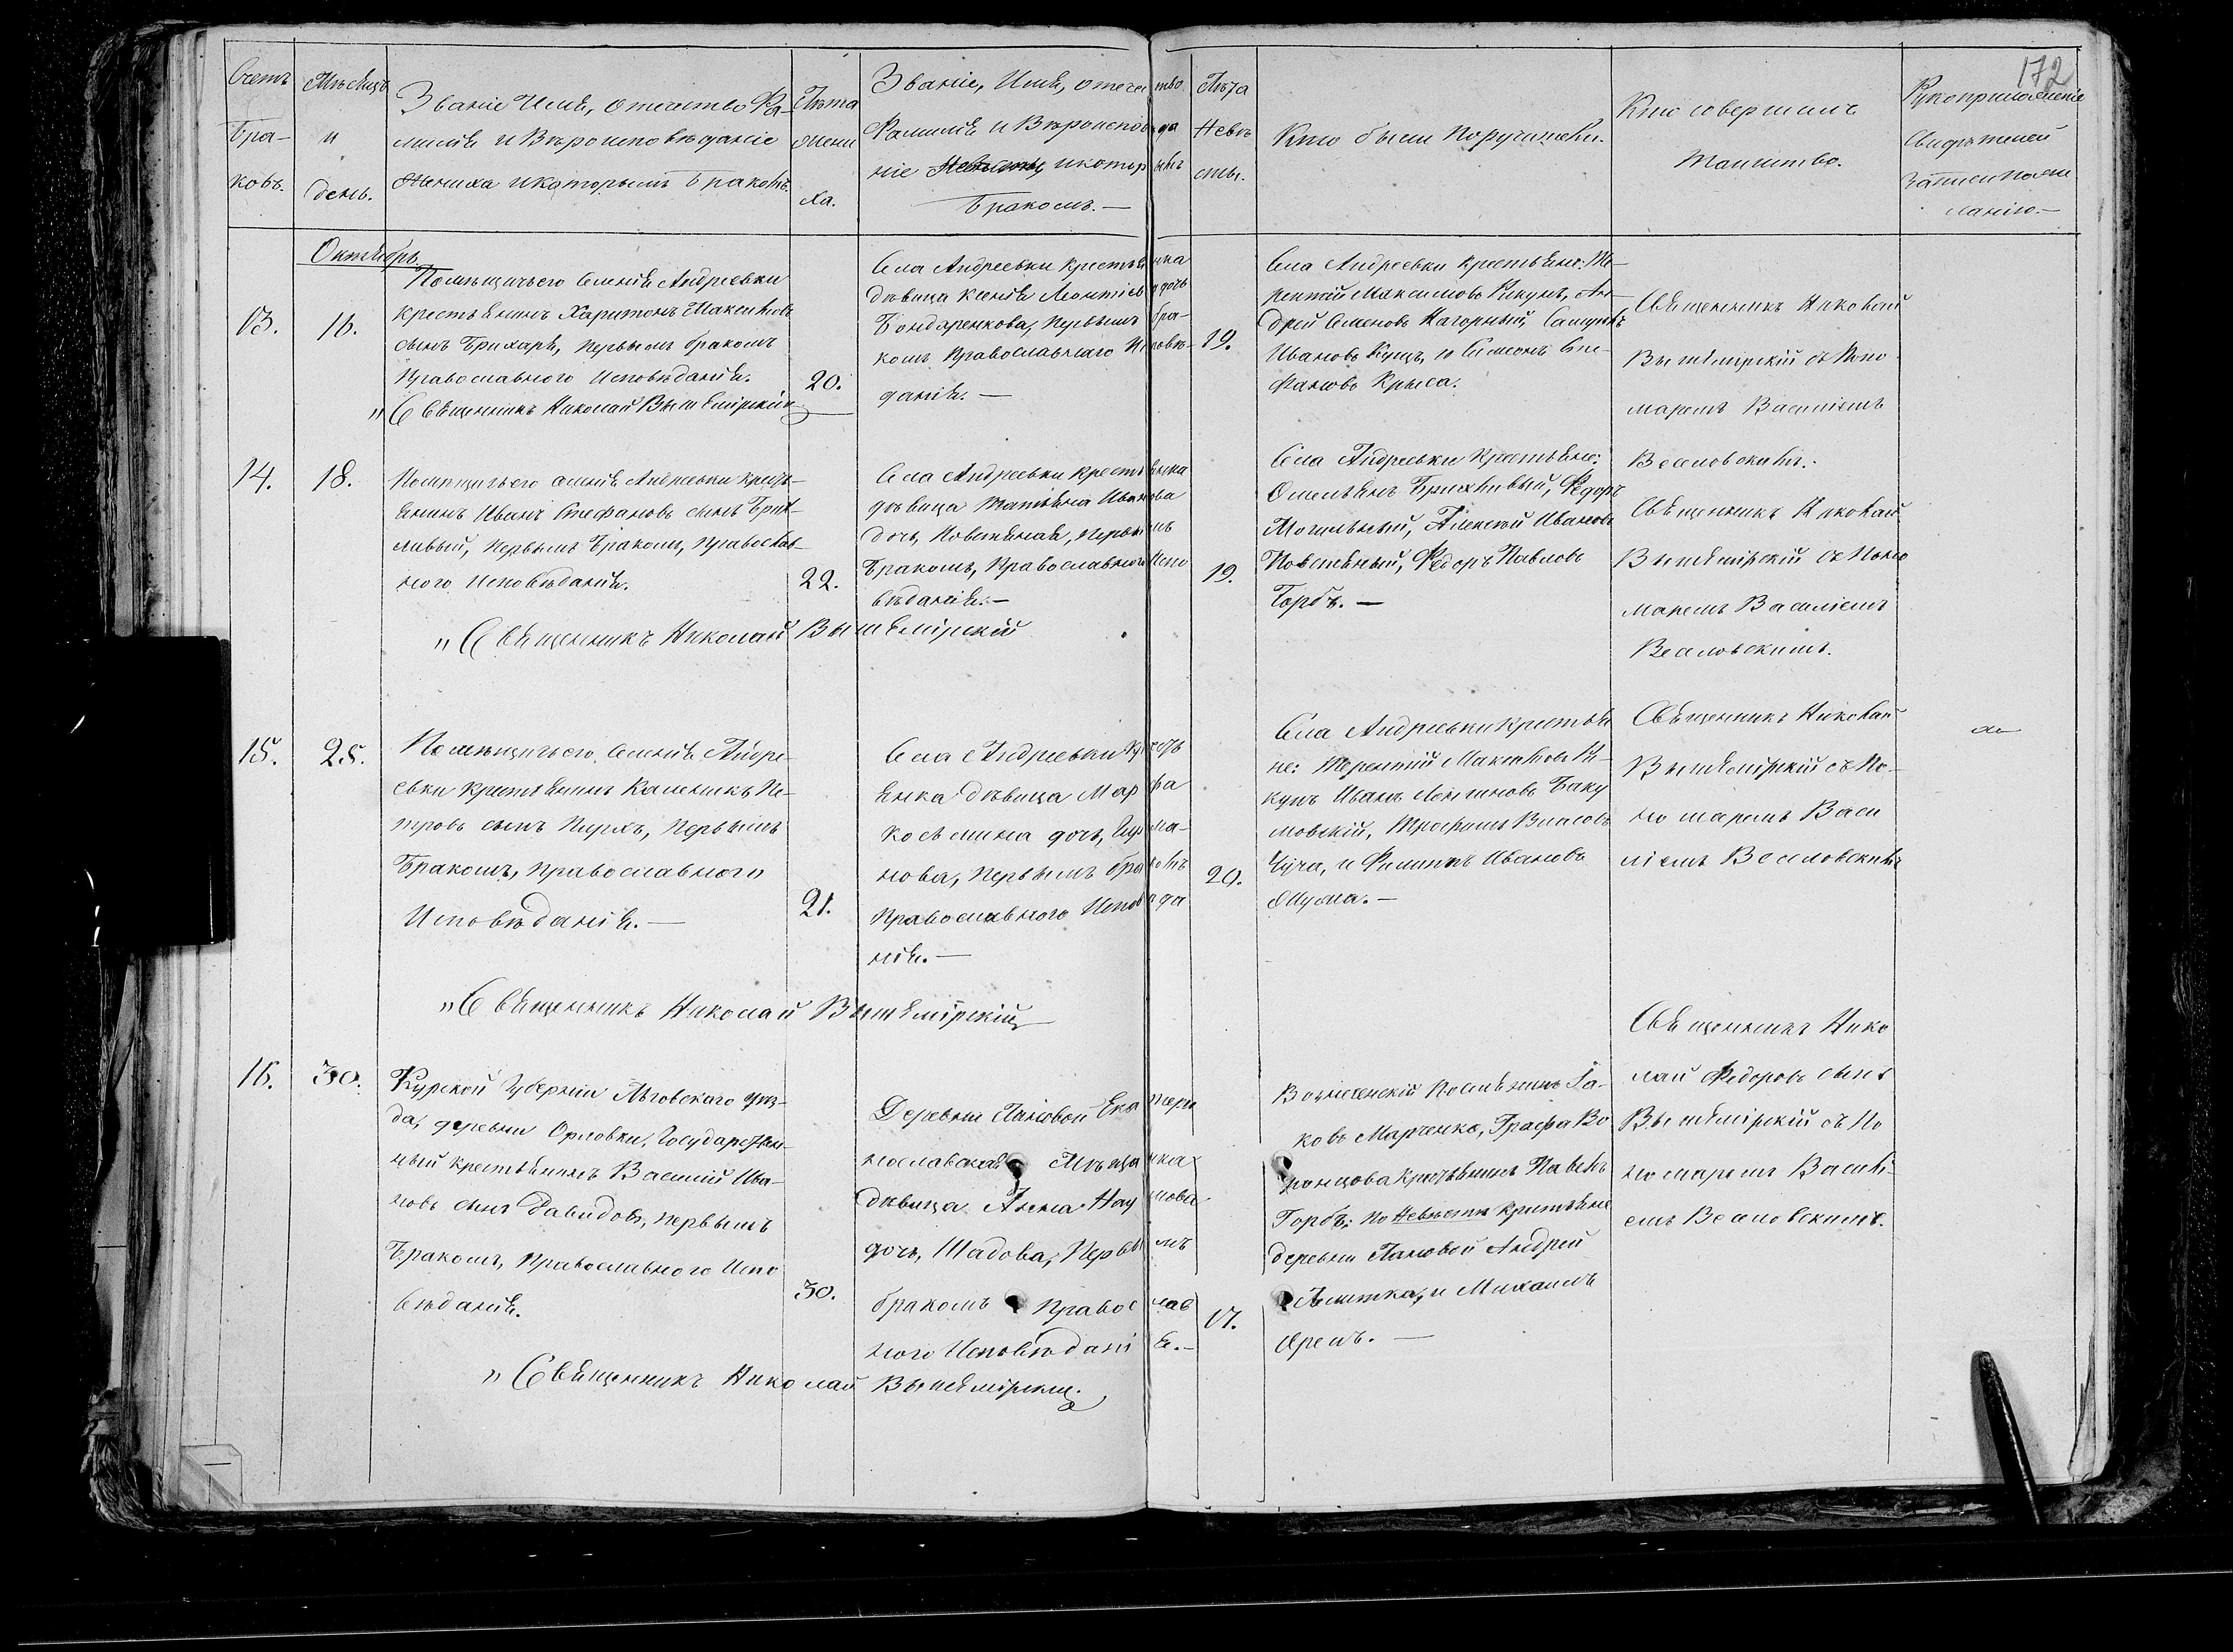 172
Счетъ
Бра-
ковъ.
Мѣсяцъ
и
день.
Званіе Имя, отечество Фа-
милія и Вѣроисповѣданіе
Жениха и которымъ Бракомъ.
Лѣта
жени
ха.
Званіе, Имя, отечество
Фамилія и Вѣроисповѣда
ніе Невѣсты и которымъ
Бракомъ. —
Лѣта
Невѣ
сты.
Кто были Поручители.
Кто совершалъ
Таинство.
Рукоприложеніе
Свидѣтелей
записи по же
ланію. —
Октябрь.
13.
16.
Помѣщичьего Селенія Андреевки
крестьянинъ Харитонъ Максимовъ
сынъ Брихарь, первымъ бракомъ
Православного Исповѣданія.
„Священникъ Николай Вышемірскій
20.
Села Андреевки крестьянка
дѣвица Ксенія Леонтіева дочь
Бондаренкова, первымъ бра-
комъ Православнаго Исповѣ-
данія. —
19.
Села Андреевки крестьяне: Те-
рентій Максимовъ Кикунъ, Ан-
дрей Семеновъ Нагорный, Самуилъ
Ивановъ Куцъ, и Симеонъ Сте-
фановъ Крыса.
Священникъ Николай
Вышемірскій съ Поно
маремъ Василіемъ
Веселовскимъ.
14.
18.
Помѣщичьего селенія Андреевки крест-
янинъ Иванъ Стефановъ сынъ Брих-
ливый, первымъ Бракомъ, Православ-
ного Исповѣданія.
22.
Села Андреевки крестьянка
дѣвица Татіяна Иванова
дочь, Повстяная, первымъ
Бракомъ, Православного Испо
вѣданія. —
„Священникъ Николай Вышемірскій
19.
Села Андреевки Крестьяне:
Омельянъ Брихливый, Федоръ
Могильный, Алексей Ивановъ
Повстяный, Федоръ Павловъ
Горбъ. —
Священникъ Николай
Вышемірскій съ Поно
маремъ Василіемъ
Веселовскимъ.
15.
25.
Помѣщичьего Селенія Андре-
евки крестьянинъ Калиникъ Пе-
тровъ сынъ Пирхъ, первымъ
Бракомъ, Православного
Исповѣданія. —
21.
Села Андреевки Крест
янка дѣвица Марфа
Косьмина дочь,
нова, первымъ бракомъ
Православного Исповѣда
нія. —
„Священникъ Николай Вышемірскій
20.
Села Андреевки крестья
не: Терентій Максимовъ Ки-
кунъ Иванъ Логиновъ Баку
мовскій, Трофимъ Власовъ
Чуча, и Филиппъ Ивановъ
Шума. —
Священникъ Николай
Вышемірскій съ По-
но маремъ Васи
ліемъ Веселовскимъ
16.
30.
Курской Губерніи Льговскаго уѣз-
да, деревни Орловки, Государствен-
ный крестьянинъ Василій Ива-
новъ сынъ Давидовъ, первымъ
Бракомъ, Православного Испо
вѣданія.
30.
Деревни Пановой Екатери
нославская Мѣщанка
дѣвица Анна Наумова
дочь, Шадова, Первымъ
бракомъ Православ
ного Исповѣданія. —
„Священникъ Николай Вышемірскій
17.
Вознесенскій Поселянинъ Іа-
ковъ Марченко, Графа Во
ронцова крестьянинъ Павелъ
Горбъ: по Невѣстѣ крестьяне
деревни Пановой Андрей
и Михаилъ
Яремъ. —
Священникъ Нико
лай Федоровъ сынъ
Вышемірскій съ По
номаремъ Васи
емъ Веселовскимъ.